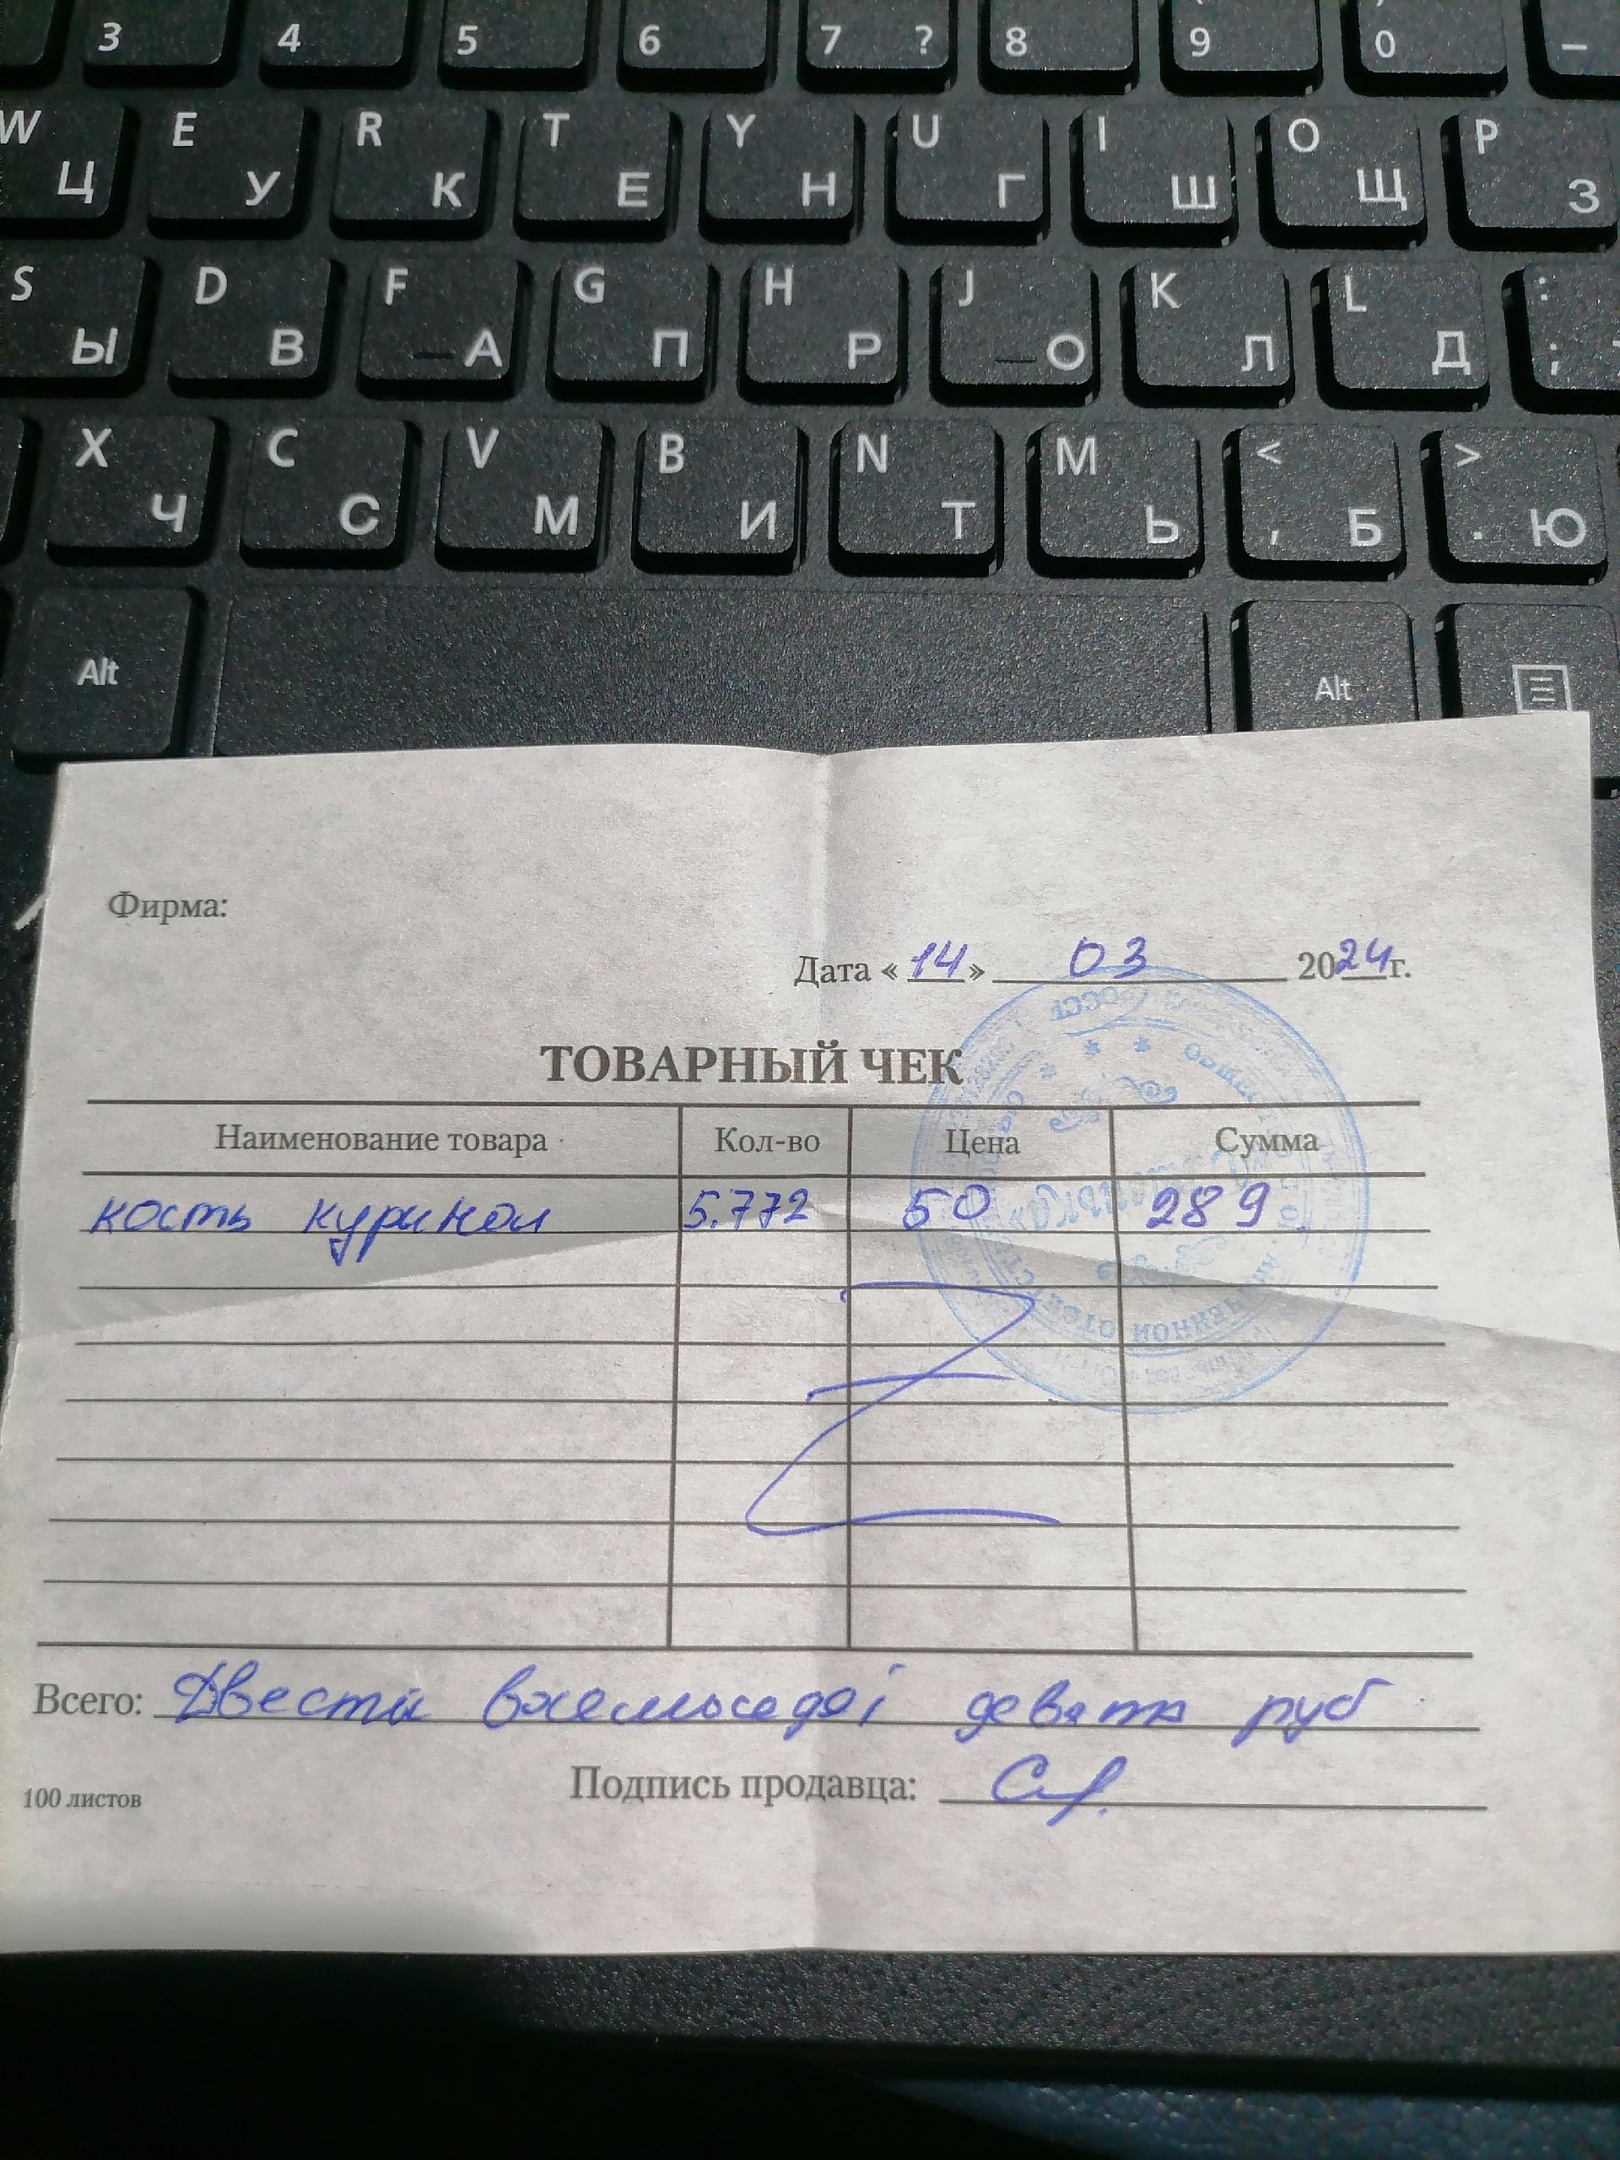 3 4 5 6 7 ? 8 9 0 –
W Ц E У R К T Е Y Н U Г I Ш O Щ P З
S Ы D В F А G П H Р J О K Л L Д : ;
X Ч C С V М B И N Т M Ь < , Б > . Ю
Alt Alt
Фирма:
Дата « 14 » 03 2024г.
ТОВАРНЫЙ ЧЕК
Наименование товара Кол-во Цена Сумма
кость куриная 5.772 50 289
Всего: Двести восемьседеі девять руб
Подпись продавца:
100 листов